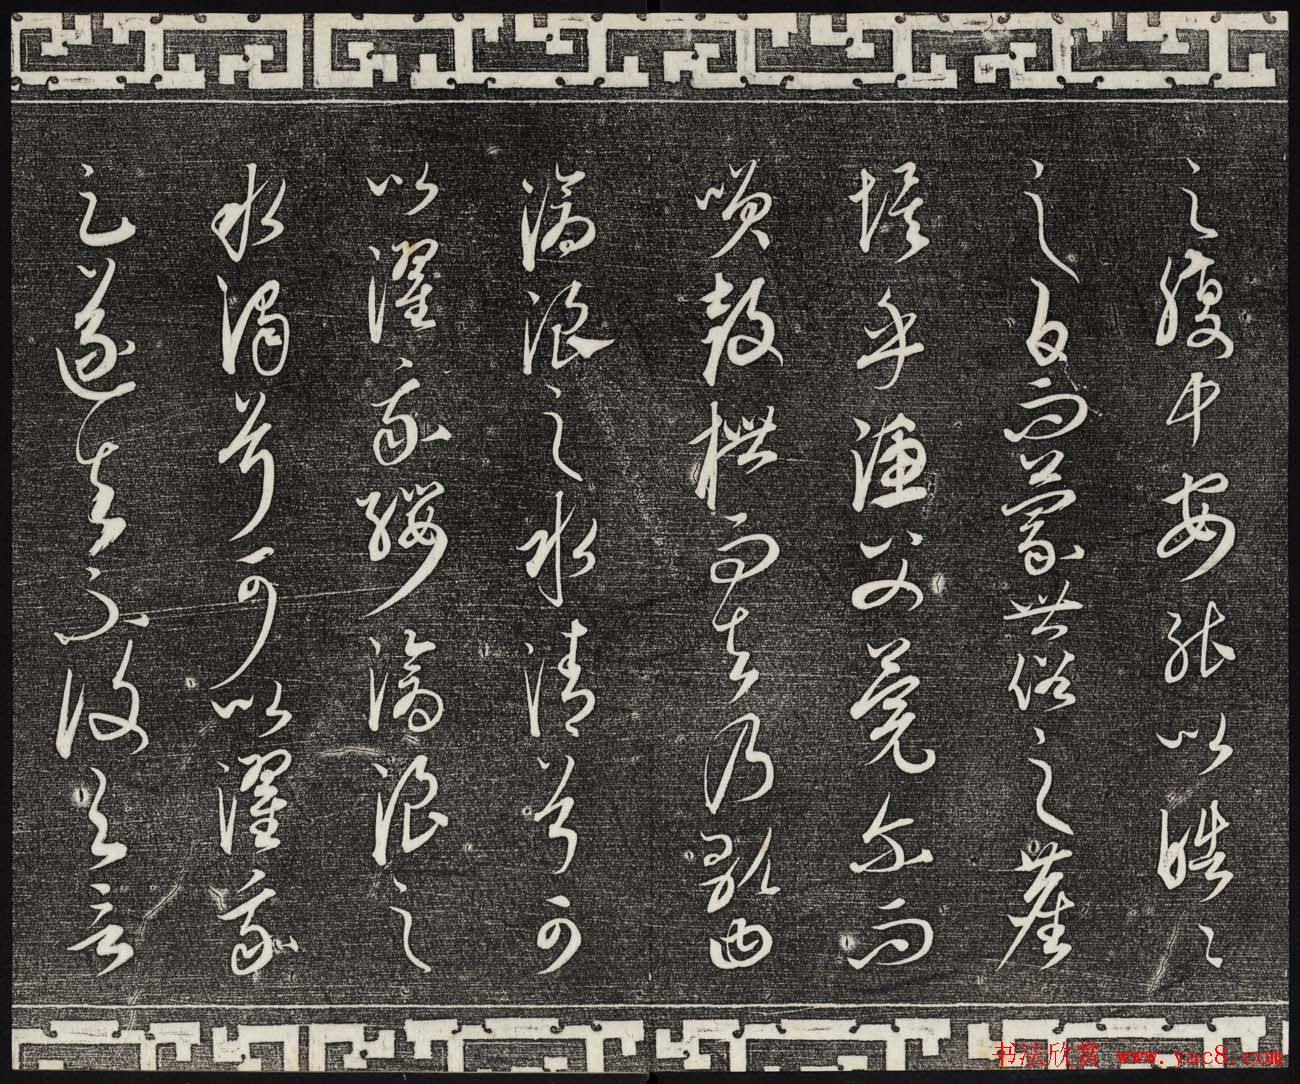 之腹中安能以皓々
之白而蒙世俗之塵
埃乎漁父莞尔而
咲鼓枻而去乃歌曰
滄浪之水清兮可
以濯我纓滄浪之
水濁兮可以濯我
足遂去不復与言
书法欣赏 www.yac8.com